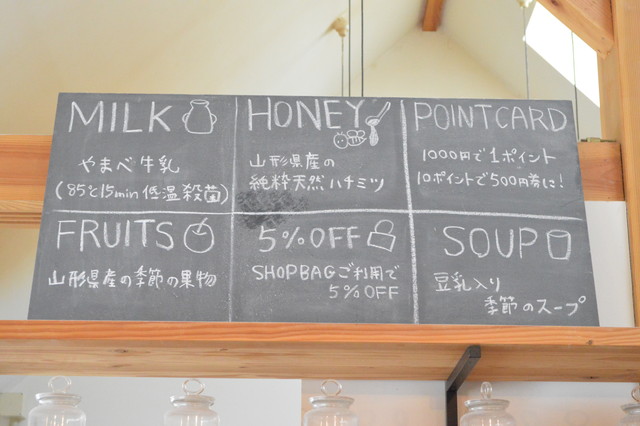 MILK
やまべ牛乳
(85℃15min低温殺菌)
HONEY
山形県産の
純粋天然ハチミツ
POINTCARD
1000円で1ポイント
10ポイントで500円券に!
FRUITS
山形県産の季節の果物
5%OFF
SHOPBAGご利用で
5%OFF
SOUP
豆乳入り
季節のスープ